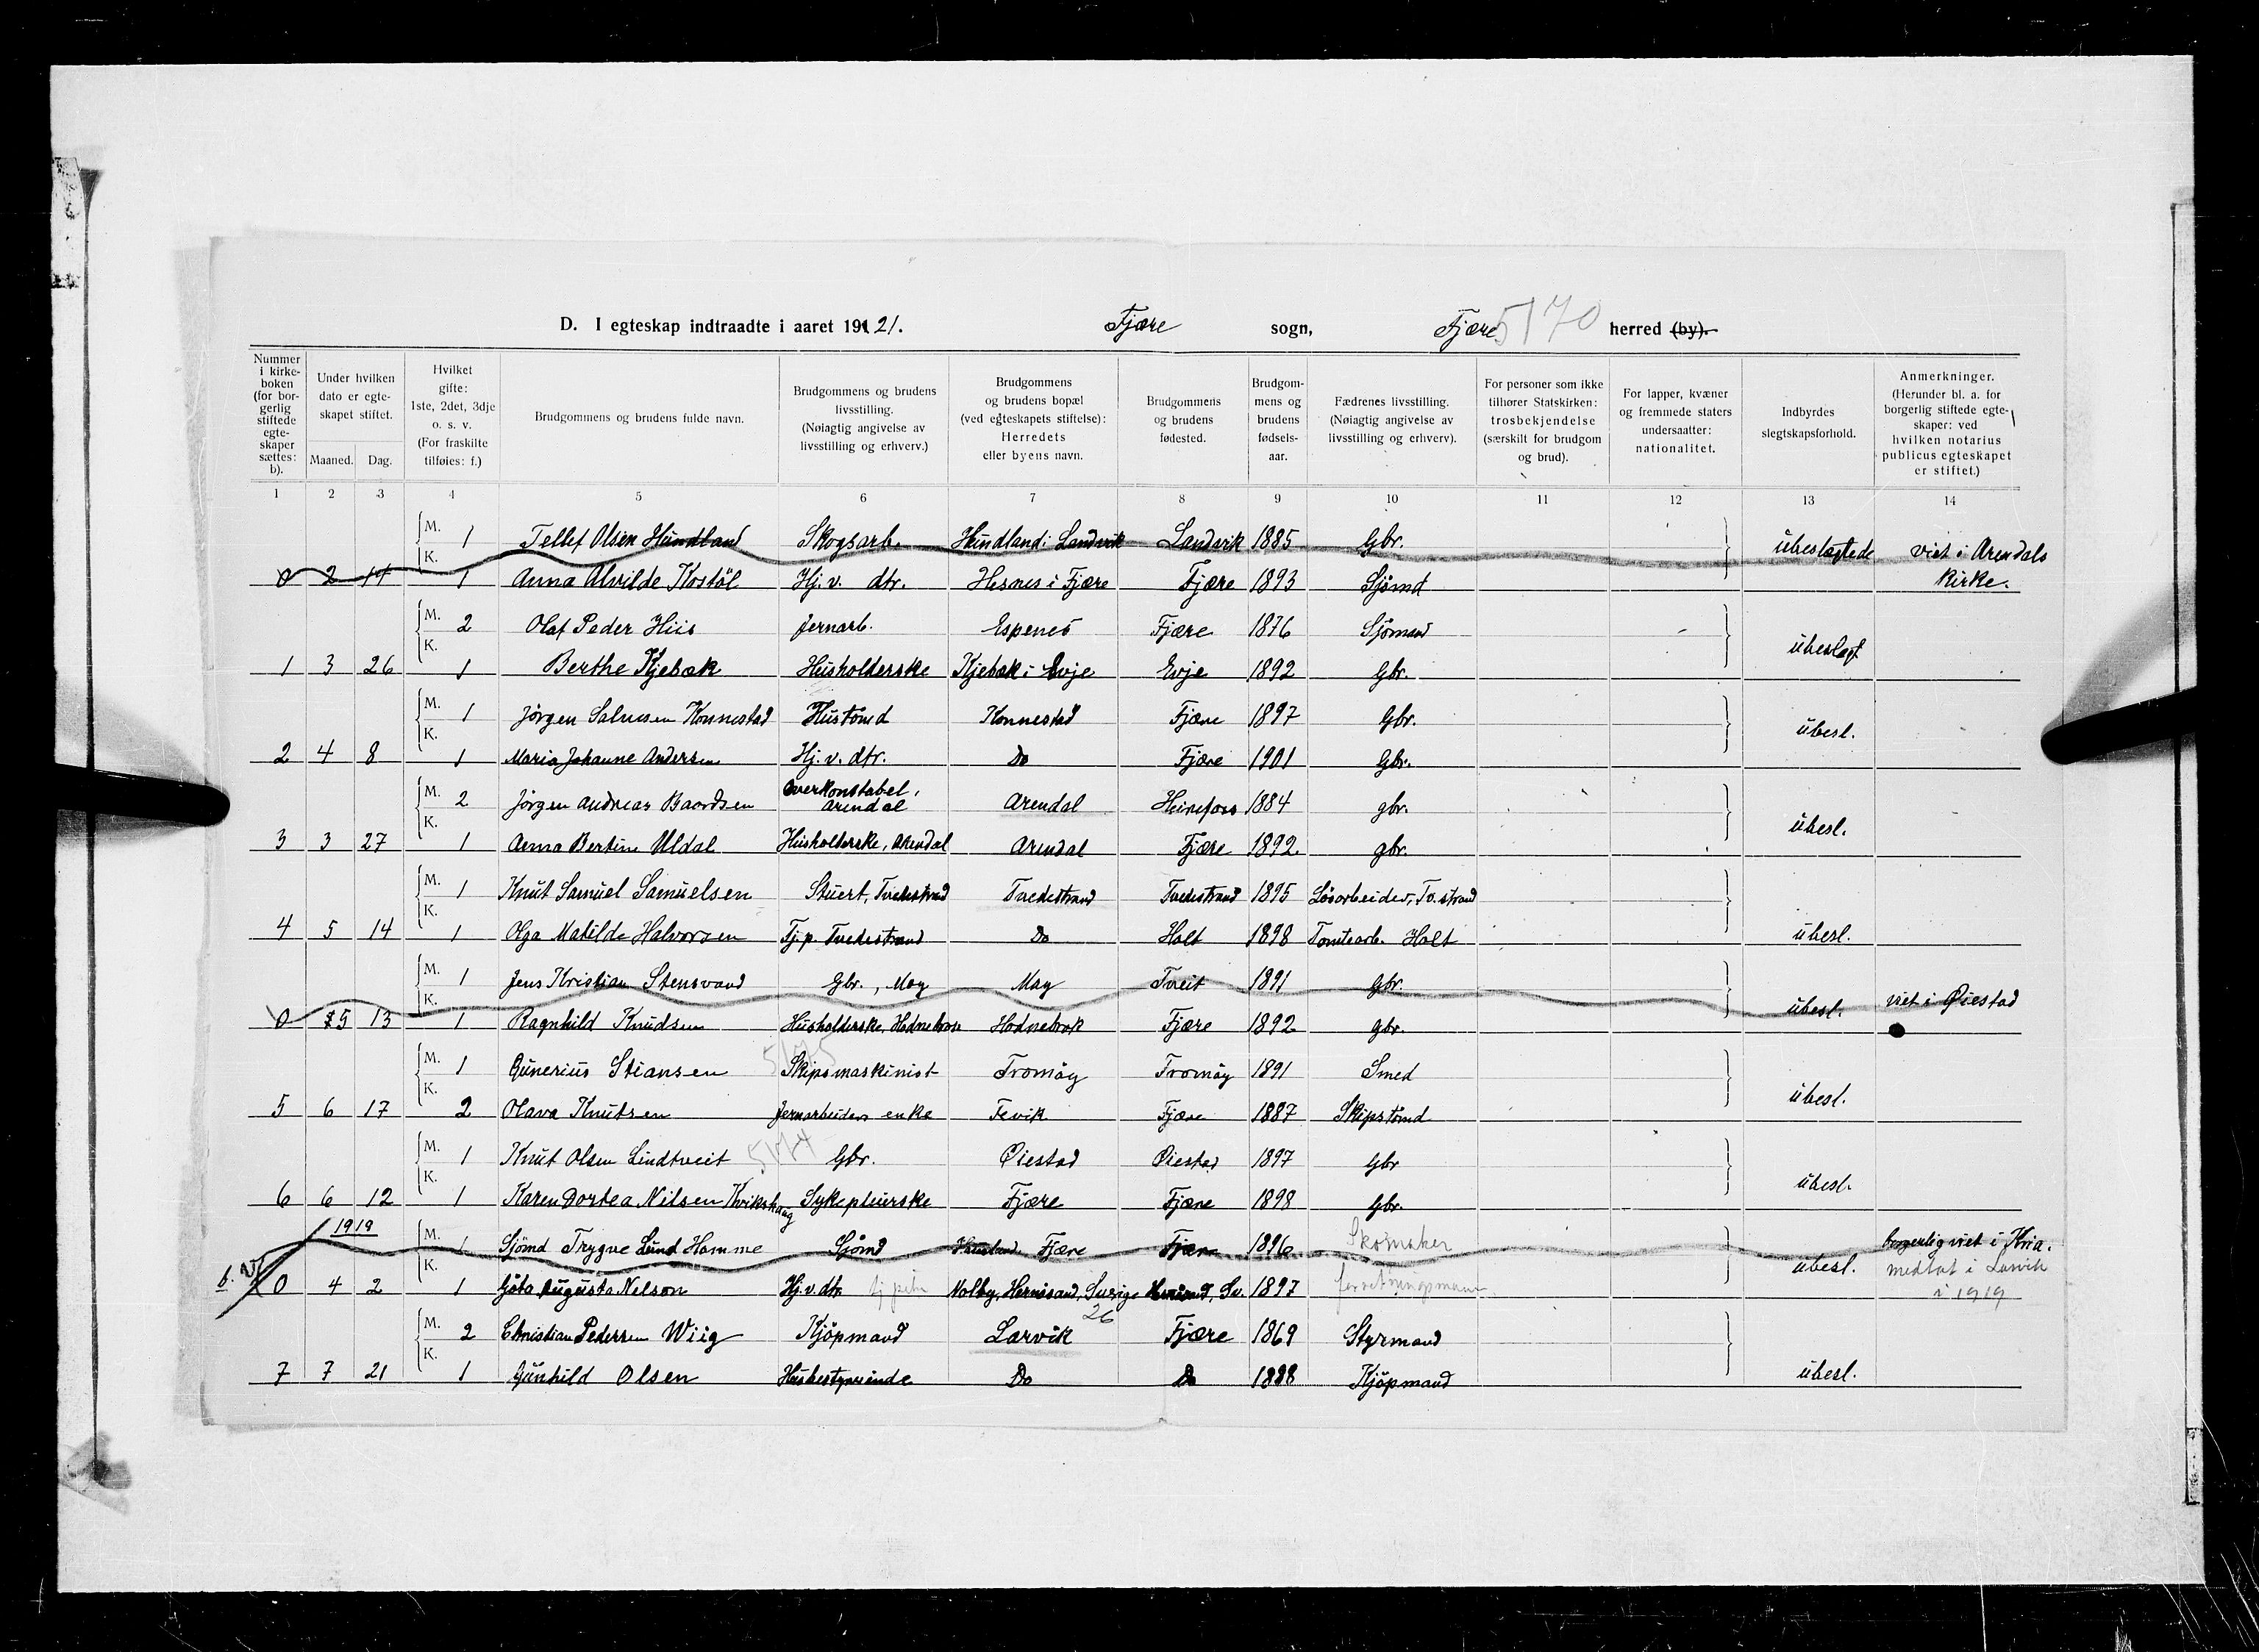 D. I egteskap indtraadte i aaret 1921. Fjære sogn, Fjære 5170 herred (by).
Nummer i kirkeboken (for borgerlig stiftede egteskaper sættes: b).
Under hvilken dato er egteskapet stiftet.
Maaned. Dag.
Hvilket gifte: 1ste, 2det, 3dje o. s. v. (For fraskilte tilføies: f.)
Brudgommens og brudens fulde navn.
Brudgommens og brudens livsstilling. (Nøiagtig angivelse av livsstilling og erhverv.)
Brudgommens og brudens bopæl (ved egteskapets stiftelse): Herredets eller byens navn.
Brudgommens og brudens fødested.
Brudgommens og brudens fødselsaar.
Fædrenes livsstilling. (Nøiagtig angivelse av livsstilling og erhverv).
For personer som ikke tilhører Statskirken: trosbekjendelse (særskilt for brudgom og brud).
For lapper, kvæner og fremmede staters undersaatter: nationalitet.
Indbyrdes slegtskapsforhold.
Anmerkninger. (Herunder bl. a. for borgerlig stiftede egteskaper: ved hvilken notarius publicus egteskapet er stiftet.)
1 2 3 4 5 6 7 8 9 10 11 12 13 14
M. 1 Tellef Olsen Hundland Skogsarb. Hundland i Landvik Landvik 1885 Gbr. übeslegtede viet i Arendals
K.
0 2 14 1 Anna Alvilde Kostöl Hj. v. dtr. Hesnes i Fjære Fjære 1893 Sjömd Kirke.
M. 2 Olaf Peder Hiis Jernarb. Espenes Fjære 1876 Sjömand
K. übeslegt
1 3 26 1 Berthe Kjebæk Husholderske Kjebæk i Evje Evje 1892 Gbr.
M. 1 Jörgen Salvesen Konnestad Tüstömd Konnestad Fjære 1897 Gbr.
K. übesl.
2 4 8 1 Maria Johanne Andersen Hj. v. dtr. Do Fjære 1901 Gbr.
M. 2 Jörgen Andreas Baardsen Overkonstabel, Arendal Arendal Heirefoss 1884 gbr.
K. übesl.
3 3 27 1 Anna Bertine Uldal Husholderske, Arendal Arendal Fjære 1892 gbr.
M. 1 Knut Samuel Samuelsen Stuert, Tvedestrand Tvedestrand Tvedestrand 1895 Lösarbeider, Tv.strand
K.
4 5 14 1 Olga Matilde Halvorsen Tj.p. Tvedestrand Do Holt 1898 Tomtearb. Holt übesl.
M. 1 Jens Kristian Stensvand Gbr., May May Tveit 1891 Gbr.
K. übesl. viet i Øiestad
0 5 13 1 Ragnhild Knudsen Husholderske, Hodnebrok Hodnebrok Fjære 1892 gbr.
5175
M. 1 Gunerius Stiansen Skipsmaskinist Tromöy Tromöy 1891 Smed
K. übesl.
5 6 17 2 Olava Knutsen Jernarbeiders enke Fevik Fjære 1887 Skipstömd
5174
M. 1 Knut Olsen Lindtveit Gbr. Øiestad Øiestad 1897 Gbr
K. übesl.
6 6 12 1 Karen Dortea Nilsen Kvikshaug Sykepleierske Fjære Fjære 1898 Gbr.
1919
M. 1 Sjömd Trygve Lund Hamme Sjömd Fjære Fjære 1896 Skomaker borgerlig viet i Kria.
K. übesl. medtat i Larvik
b. 0 4 2 1 Göta Augusta Nelson Hj. v. dtr. Nolby, Hernösand, Sverige Sv. 1897 forretningsmann i 1919
26
M. 2 Christian Pedersen Wiig Kjöpmand Larvik Fjære 1869 Styrmand
K.
7 7 21 1 Gunhild Olsen Husbestyrerinde Do Do 1888 Kjöpmand übesl.